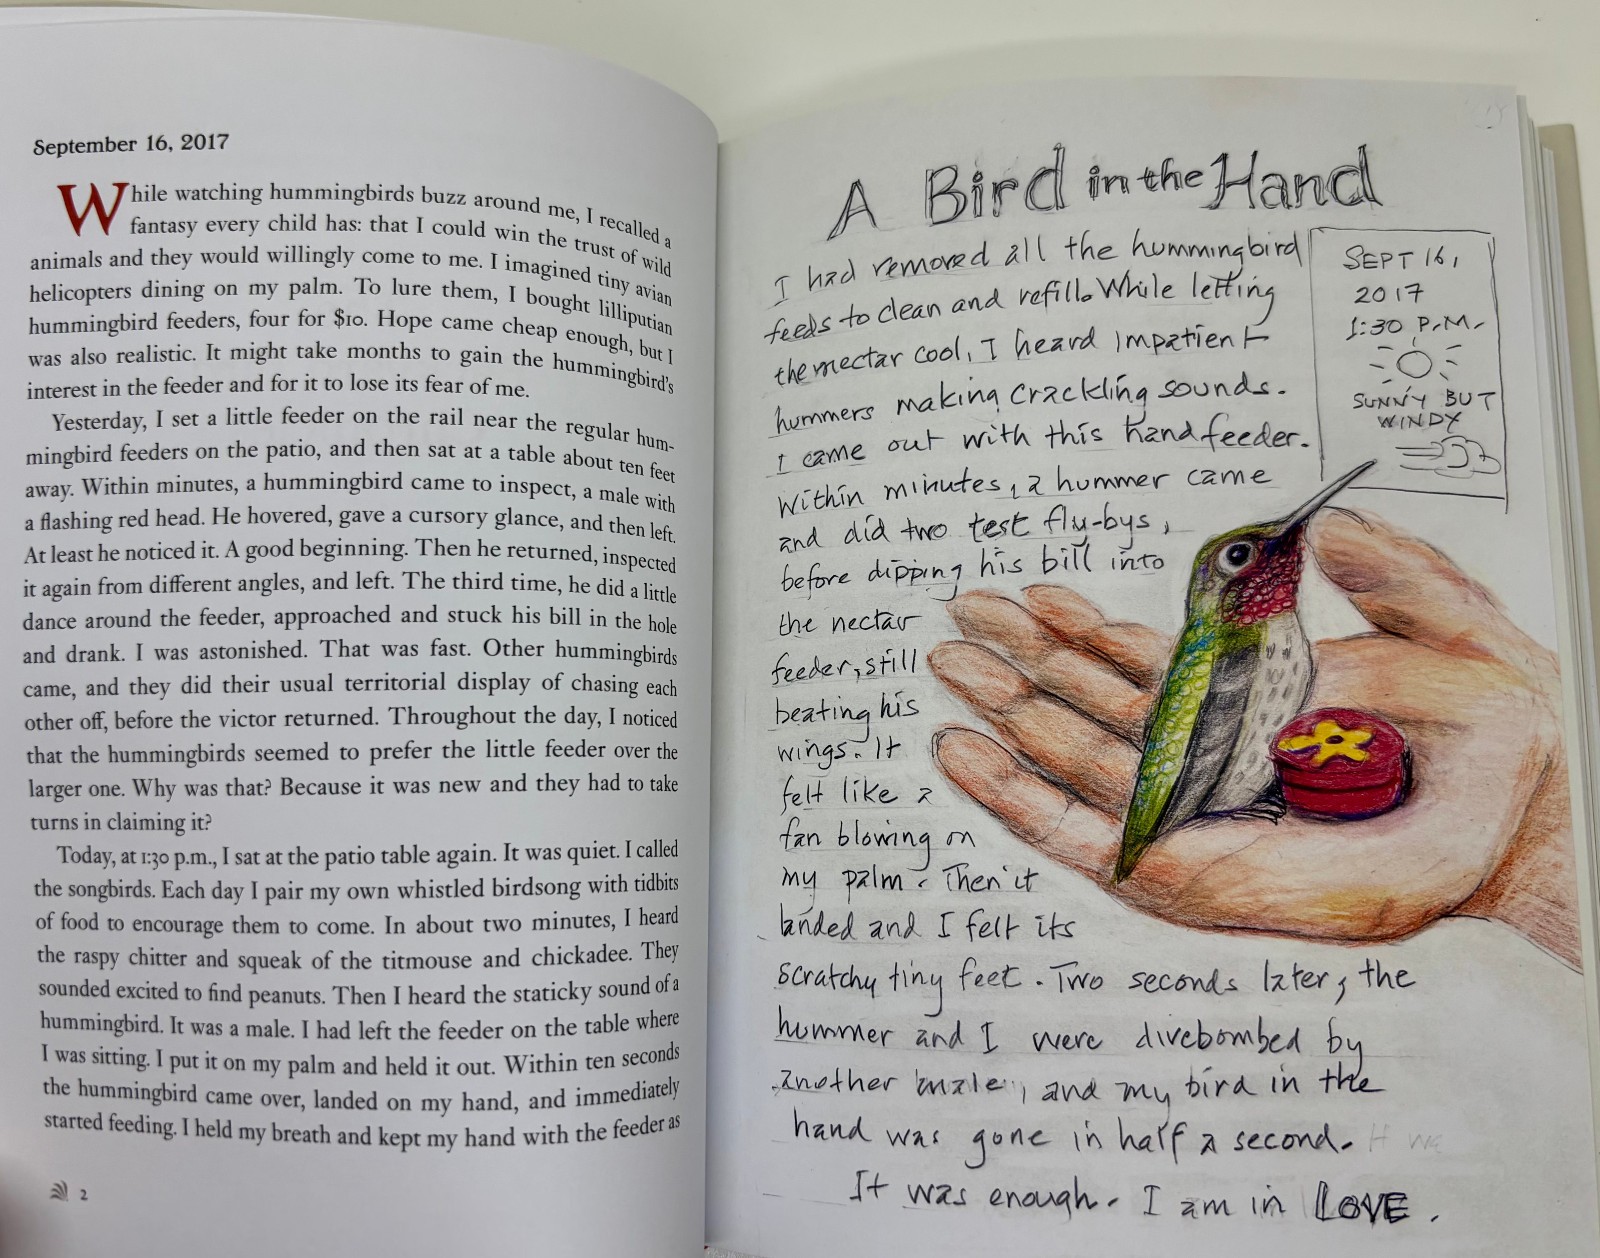 September 16, 2017
While watching hummingbirds buzz around me, I recalled a
fantasy every child has: that I could win the trust of wild
animals and they would willingly come to me. I imagined tiny avian
helicopters dining on my palm. To lure them, I bought lilliputian
hummingbird feeders, four for $10. Hope came cheap enough, but I
was also realistic. It might take months to gain the hummingbird's
interest in the feeder and for it to lose its fear of me.
Yesterday, I set a little feeder on the rail near the regular hum-
mingbird feeders on the patio, and then sat at a table about ten feet
away. Within minutes, a hummingbird came to inspect, a male with
a flashing red head. He hovered, gave a cursory glance, and then left.
At least he noticed it. A good beginning. Then he returned, inspected
it again from different angles, and left. The third time, he did a little
dance around the feeder, approached and stuck his bill in the hole
and drank. I was astonished. That was fast. Other hummingbirds
came, and they did their usual territorial display of chasing each
other off, before the victor returned. Throughout the day, I noticed
that the hummingbirds seemed to prefer the little feeder over the
larger one. Why was that? Because it was new and they had to take
turns in claiming it?
Today, at 1:30 p.m., I sat at the patio table again. It was quiet. I called
the songbirds. Each day I pair my own whistled birdsong with tidbits
of food to encourage them to come. In about two minutes, I heard
the raspy chitter and squeak of the titmouse and chickadee. They
sounded excited to find peanuts. Then I heard the staticky sound of a
hummingbird. It was a male. I had left the feeder on the table where
I was sitting. I put it on my palm and held it out. Within ten seconds
the hummingbird came over, landed on my hand, and immediately
started feeding. I held my breath and kept my hand with the feeder as
2
A Bird in the Hand
I had removed all the hummingbird
feeds to clean and refill. While letting
the nectar cool, I heard impatient
hummers making crackling sounds.
I came out with this hand feeder.
Within minutes, a hummer came
and did two test fly-bys,
before dipping his bill into
the nectar
feeder, still
beating his
wings. It
felt like a
fan blowing on
my palm. Then it
landed and I felt its
scratchy tiny feet. Two seconds later, the
hummer and I were divebombed by
another male, and my bird in the
hand was gone in half a second. It we
It was enough. I am in LOVE.
SEPT 16,
2017
1:30 P.M.
SUNNY BUT
WINDY